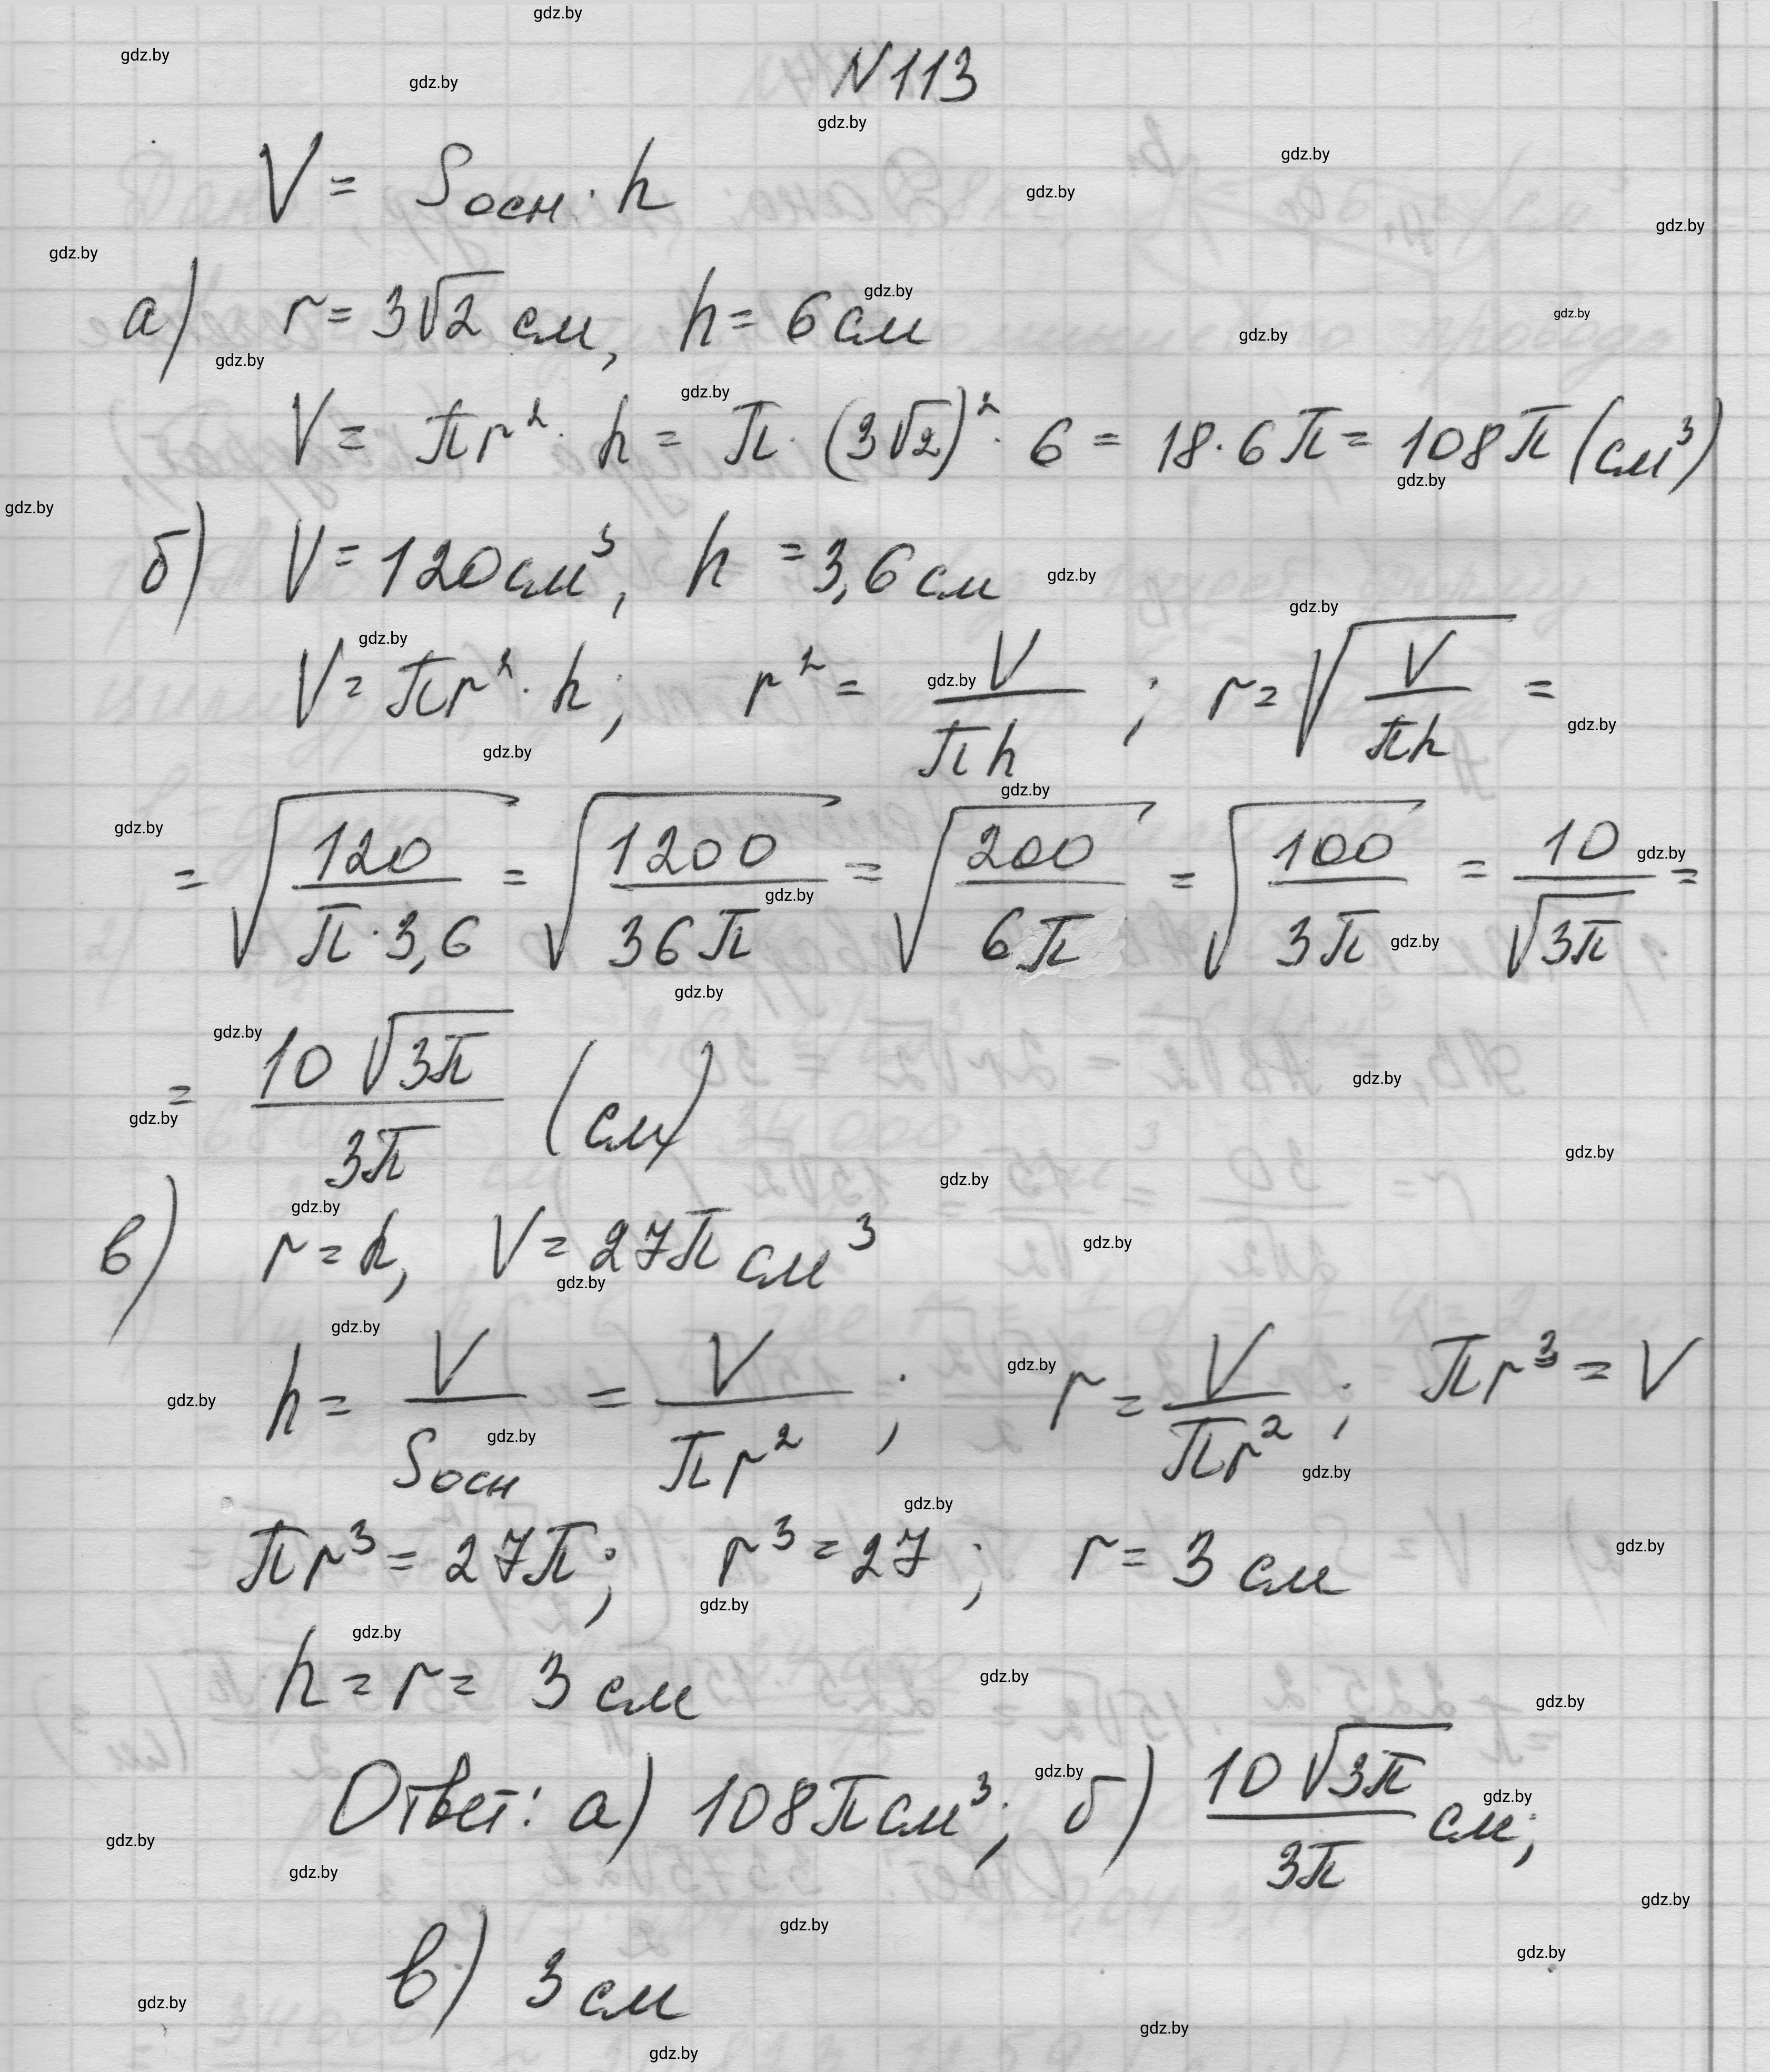 N113
V = Sосн · h
а) r = 3√2 см, h = 6 см
V = πr² · h = π · (3√2)² · 6 = 18 · 6π = 108π (см³)
б) V = 120 см³, h = 3,6 см
V = πr² · h; r² = V/(πh); r = √(V/(πh)) =
= √(120/(π · 3,6)) = √(1200/(36π)) = √(200/(6π)) = √(100/(3π)) = 10/√(3π) =
= 10√(3π)/(3π) (см)
в) r = h, V = 27π см³
h = V/Sосн = V/(πr²); r = V/(πr²); πr³ = V
πr³ = 27π; r³ = 27; r = 3 см
h = r = 3 см
Ответ: а) 108π см³; б) 10√(3π)/(3π) см;
в) 3 см
gdz.by